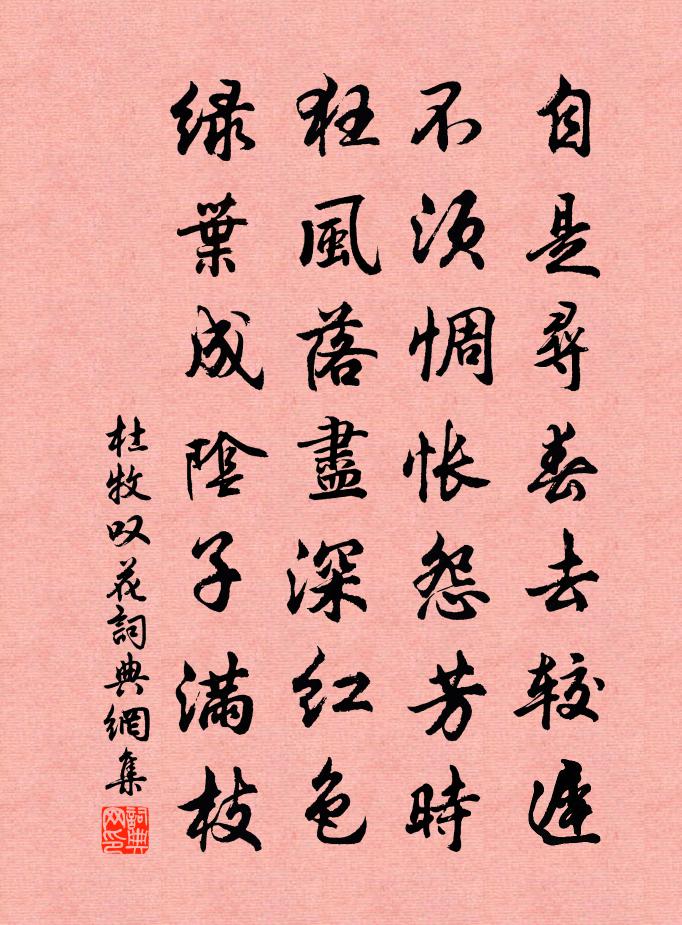 自是尋春去较遲
不須惆怅怨芳時
狂風落盡深红色
绿葉成陰子滿枝
杜牧叹花詞典網集
詞典网印